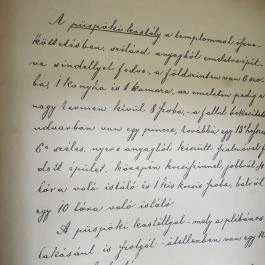 A püspöki kastély a templommal össze-
köttetésben, szilárd anyagból emeletre épít-
va zsindellyel fedve, a földszinten van 6 szo-
ba, 1 konyha és 1 kamara, az emeleten pedig a
nagy termen kívül 8 szoba, a fallal bekerített
udvarban van egy pincze, továbbá egy 13 öl
6° széles, nyers anyagból készült szalmával fe-
dett épület, közepén kocsiszinnel, jobbról
lóra való istáló és 1 kis kocsis szoba, balról
egy 10 lóra való istáló
A püspöki kastéllyal mely a plébános
lakásául is szolgál átellenben van egy